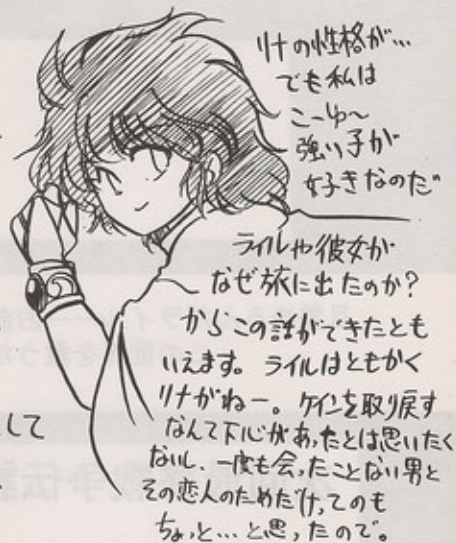 リナの性格が…
でも私は
こーゆ〜
強い子が
好きなのだ
ライルや彼女が
なぜ旅に出たのか?
からこの話ができたとも
いえます。ライルはともかく
リナがねー。ケインを取り戻す
なんて下心があったとは思いたく
ないし、一度も会ったことない男と
その恋人のためだけってのも
ちょっと…と思ったので。
して